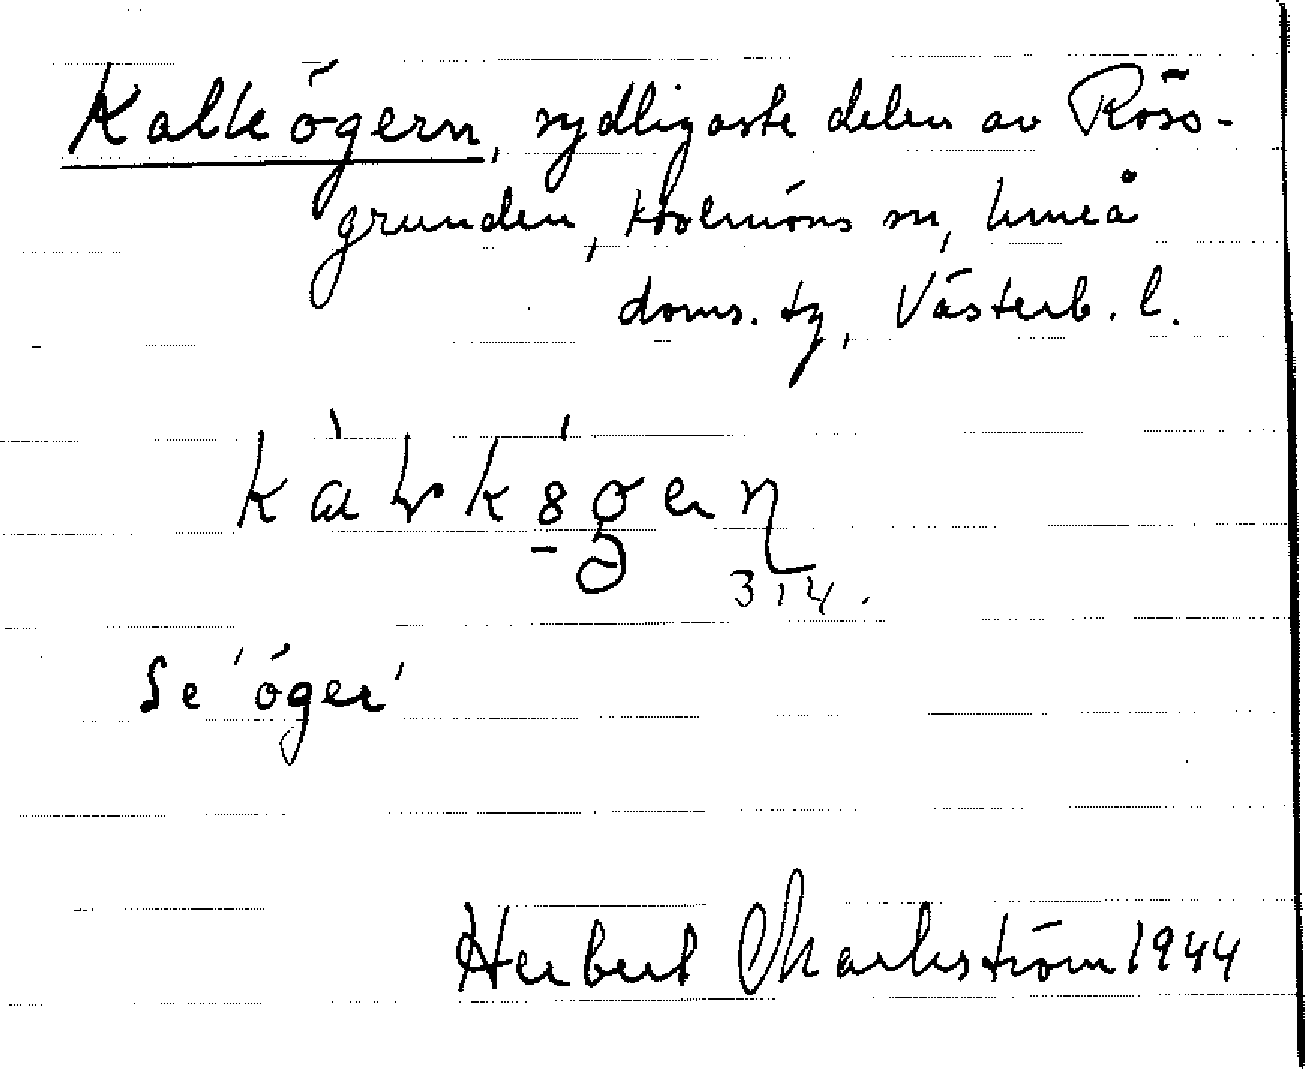 Kalkögern, sydligaste delen av Röss-
grunden, Holmöns sn, Umeå
doms. tg, Västerb. l.
Se 'öger'
Herbert Markström 1944